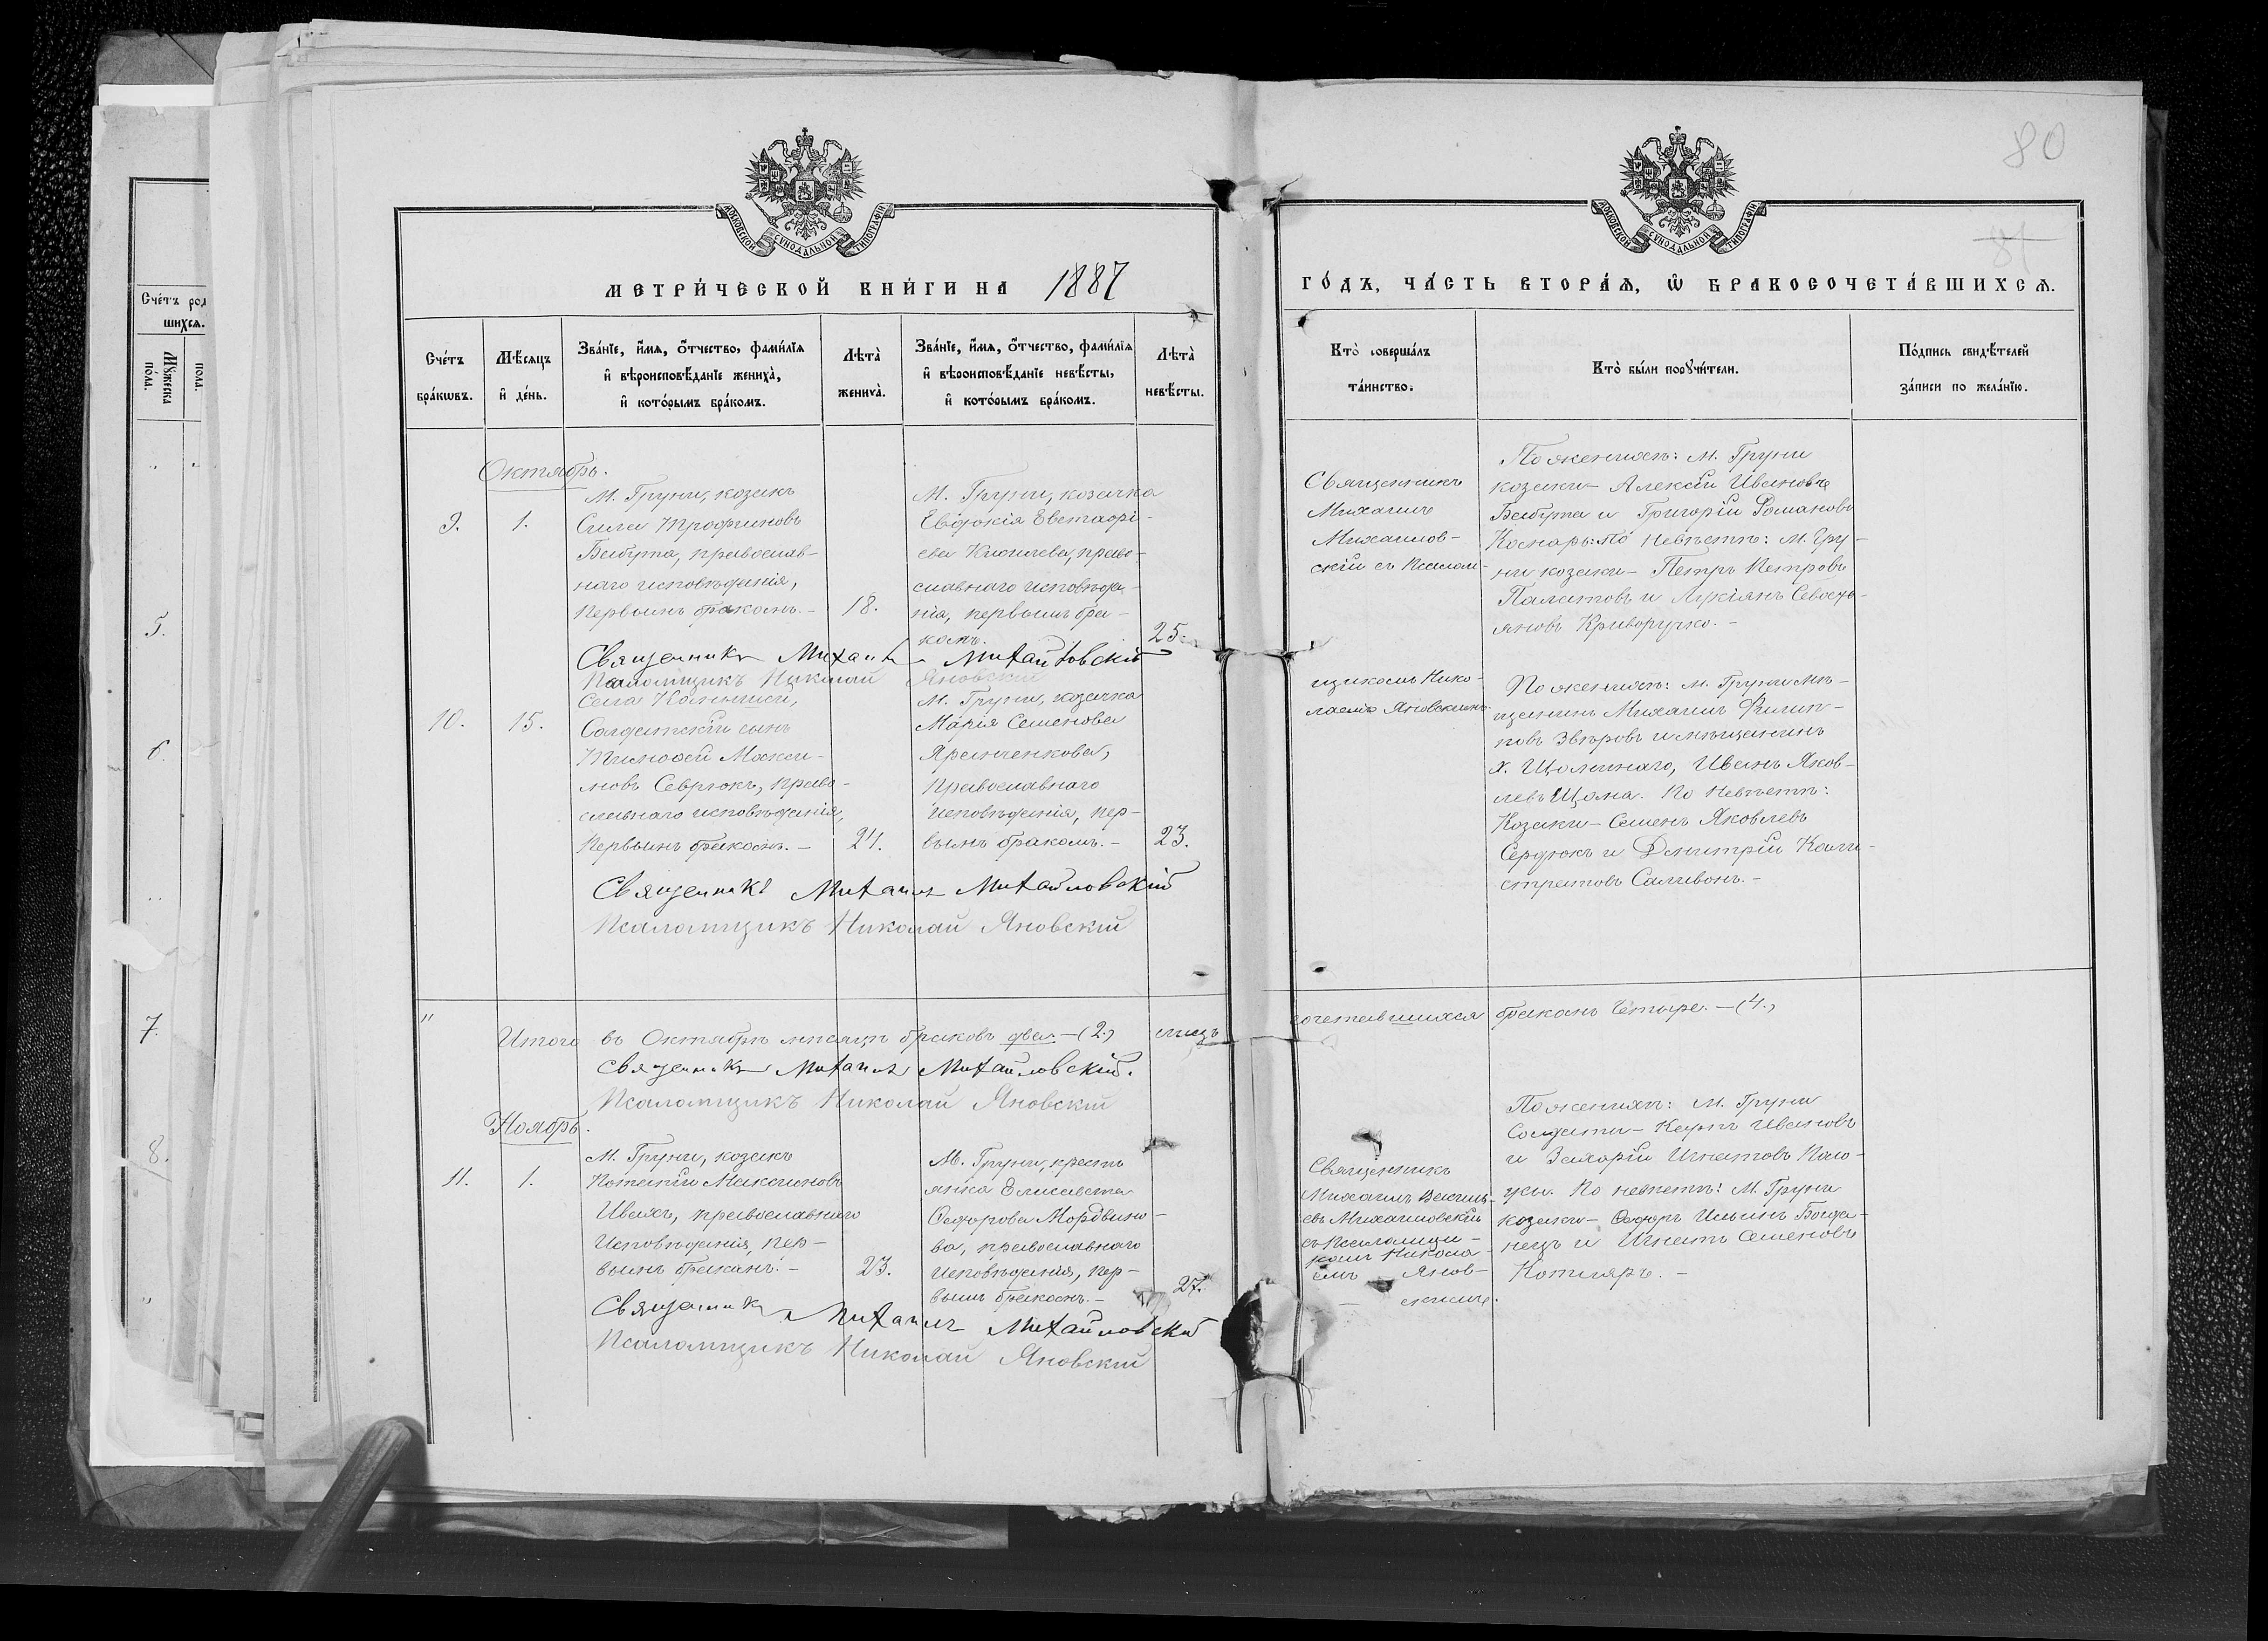 80
81
МОСКОВСКОЙ СѴНОДАЛЬНОЙ ТИПОГРАФІИ
МОСКОВСКОЙ СѴНОДАЛЬНОЙ ТИПОГРАФІИ
МЕТРИ́ЧЕСКОЙ КНИ́ГИ НА 1887
ГО́ДЪ, ЧА́СТЬ ВТОРА́Я, Ѡ҆ БРАКОСОЧЕТА́ВШИХСѦ.
Сче́тъ
бра́кѡвъ.
Мѣ́сяцъ
и҆ де́нь.
Зва́нїе, и҆́мя, о҆́тчество, фами́лїя
и҆ вѣроисповѣ́данїе жениха̀,
и҆ кото́рымъ бра́комъ.
Лѣта̀
жениха̀.
Зва́нїе, и҆́мя, о҆́тчество, фами́лїя
и҆ вѣроисповѣ́данїе невѣ́сты,
и҆ кото́рымъ бра́комъ.
Лѣта̀
невѣ́сты.
Кто̀ соверша́лъ
та́инство.
Кто̀ бы́ли порꙋчи́тели.
По́дпись свидѣ́телей
за́писи по жела́нїю.
Октябрь.
9.
1.
М. Груни, козакъ
Сила Трофимовъ
Бабута, православ-
наго исповѣданія,
первымъ бракомъ. -
18.
М. Груни, козачка
Евдокія Евстафі-
ева, право-
славнаго исповѣда-
нія, первымъ бра-
комъ.
25.
Священникъ
Михаилъ
Михайлов-
скій съ Псалом-
щикомъ Нико-
лаемъ Яновскимъ.
По женихѣ: М. Груни
козаки - Алексѣй Ивановъ
Бабута и Григорій Романовъ
Коснарь: По невѣстѣ: М. Гру-
ни козаки - Петръ Петровъ
и Лукіянъ Севасть-
яновъ Криворучко. -
Священникъ Михаилъ Михайловскій
Псаломщикъ Николай Яновскій
10.
15.
Села
Солдатскій сынъ
Тимофей Макси-
мовъ Севрюкъ, право-
славнаго исповѣданія,
первымъ бракомъ. -
24.
М. Груни, козачка
Марія Семенова
Яременкова,
Православнаго
исповѣданія, пер-
вымъ бракомъ. -
23.
По женихѣ: М. Груни мѣ-
щанинъ Михаилъ Филип-
повъ Звѣровъ и мѣщанинъ
х. Иванъ Яков-
левъ По невѣстѣ:
Козаки - Семенъ Яковлевъ
Сердюкъ и Дмитрій Кали-
стратовъ Саливонъ. -
Священникъ Михаилъ Михайловскій
Псаломщикъ Николай Яновскій
"
Итого въ Октябрѣ мѣсяцѣ браковъ два. - (2.) лицъ
сочетавшихся бракомъ Четыре. - (4.)
Священникъ Михаилъ Михайловскій.
Псаломщикъ Николай Яновскій
Ноябрь.
11.
1.
М. Груни, козакъ
Потапій Максимовъ
Ивахъ, православнаго
Исповѣданія, пер-
вымъ бракомъ. -
23.
М. Груни, кресть
янка Елисавета
Федорова Мордвино-
ва, православнаго
исповѣданія, пер-
вымъ бракомъ. -
27.
Священникъ
Михаилъ Василь-
евъ Михайловскій
съ Псаломщи-
комъ Никола-
емъ Янов-
- скимъ.
По женихѣ: М. Груни
Солдаты - Карпъ Ивановъ
и Захарій Игнатовъ
По невѣстѣ: М. Груни
козаки - Федоръ Ильинъ Богда-
нецъ и Игнатъ Семеновъ
Котляръ. -
Священникъ Михаилъ Михайловскій
Псаломщикъ Николай Яновскій
Сче́тъ
шихся.
Мꙋ́жеска
по́ла.
по́ла.
5.
6.
7.
8.